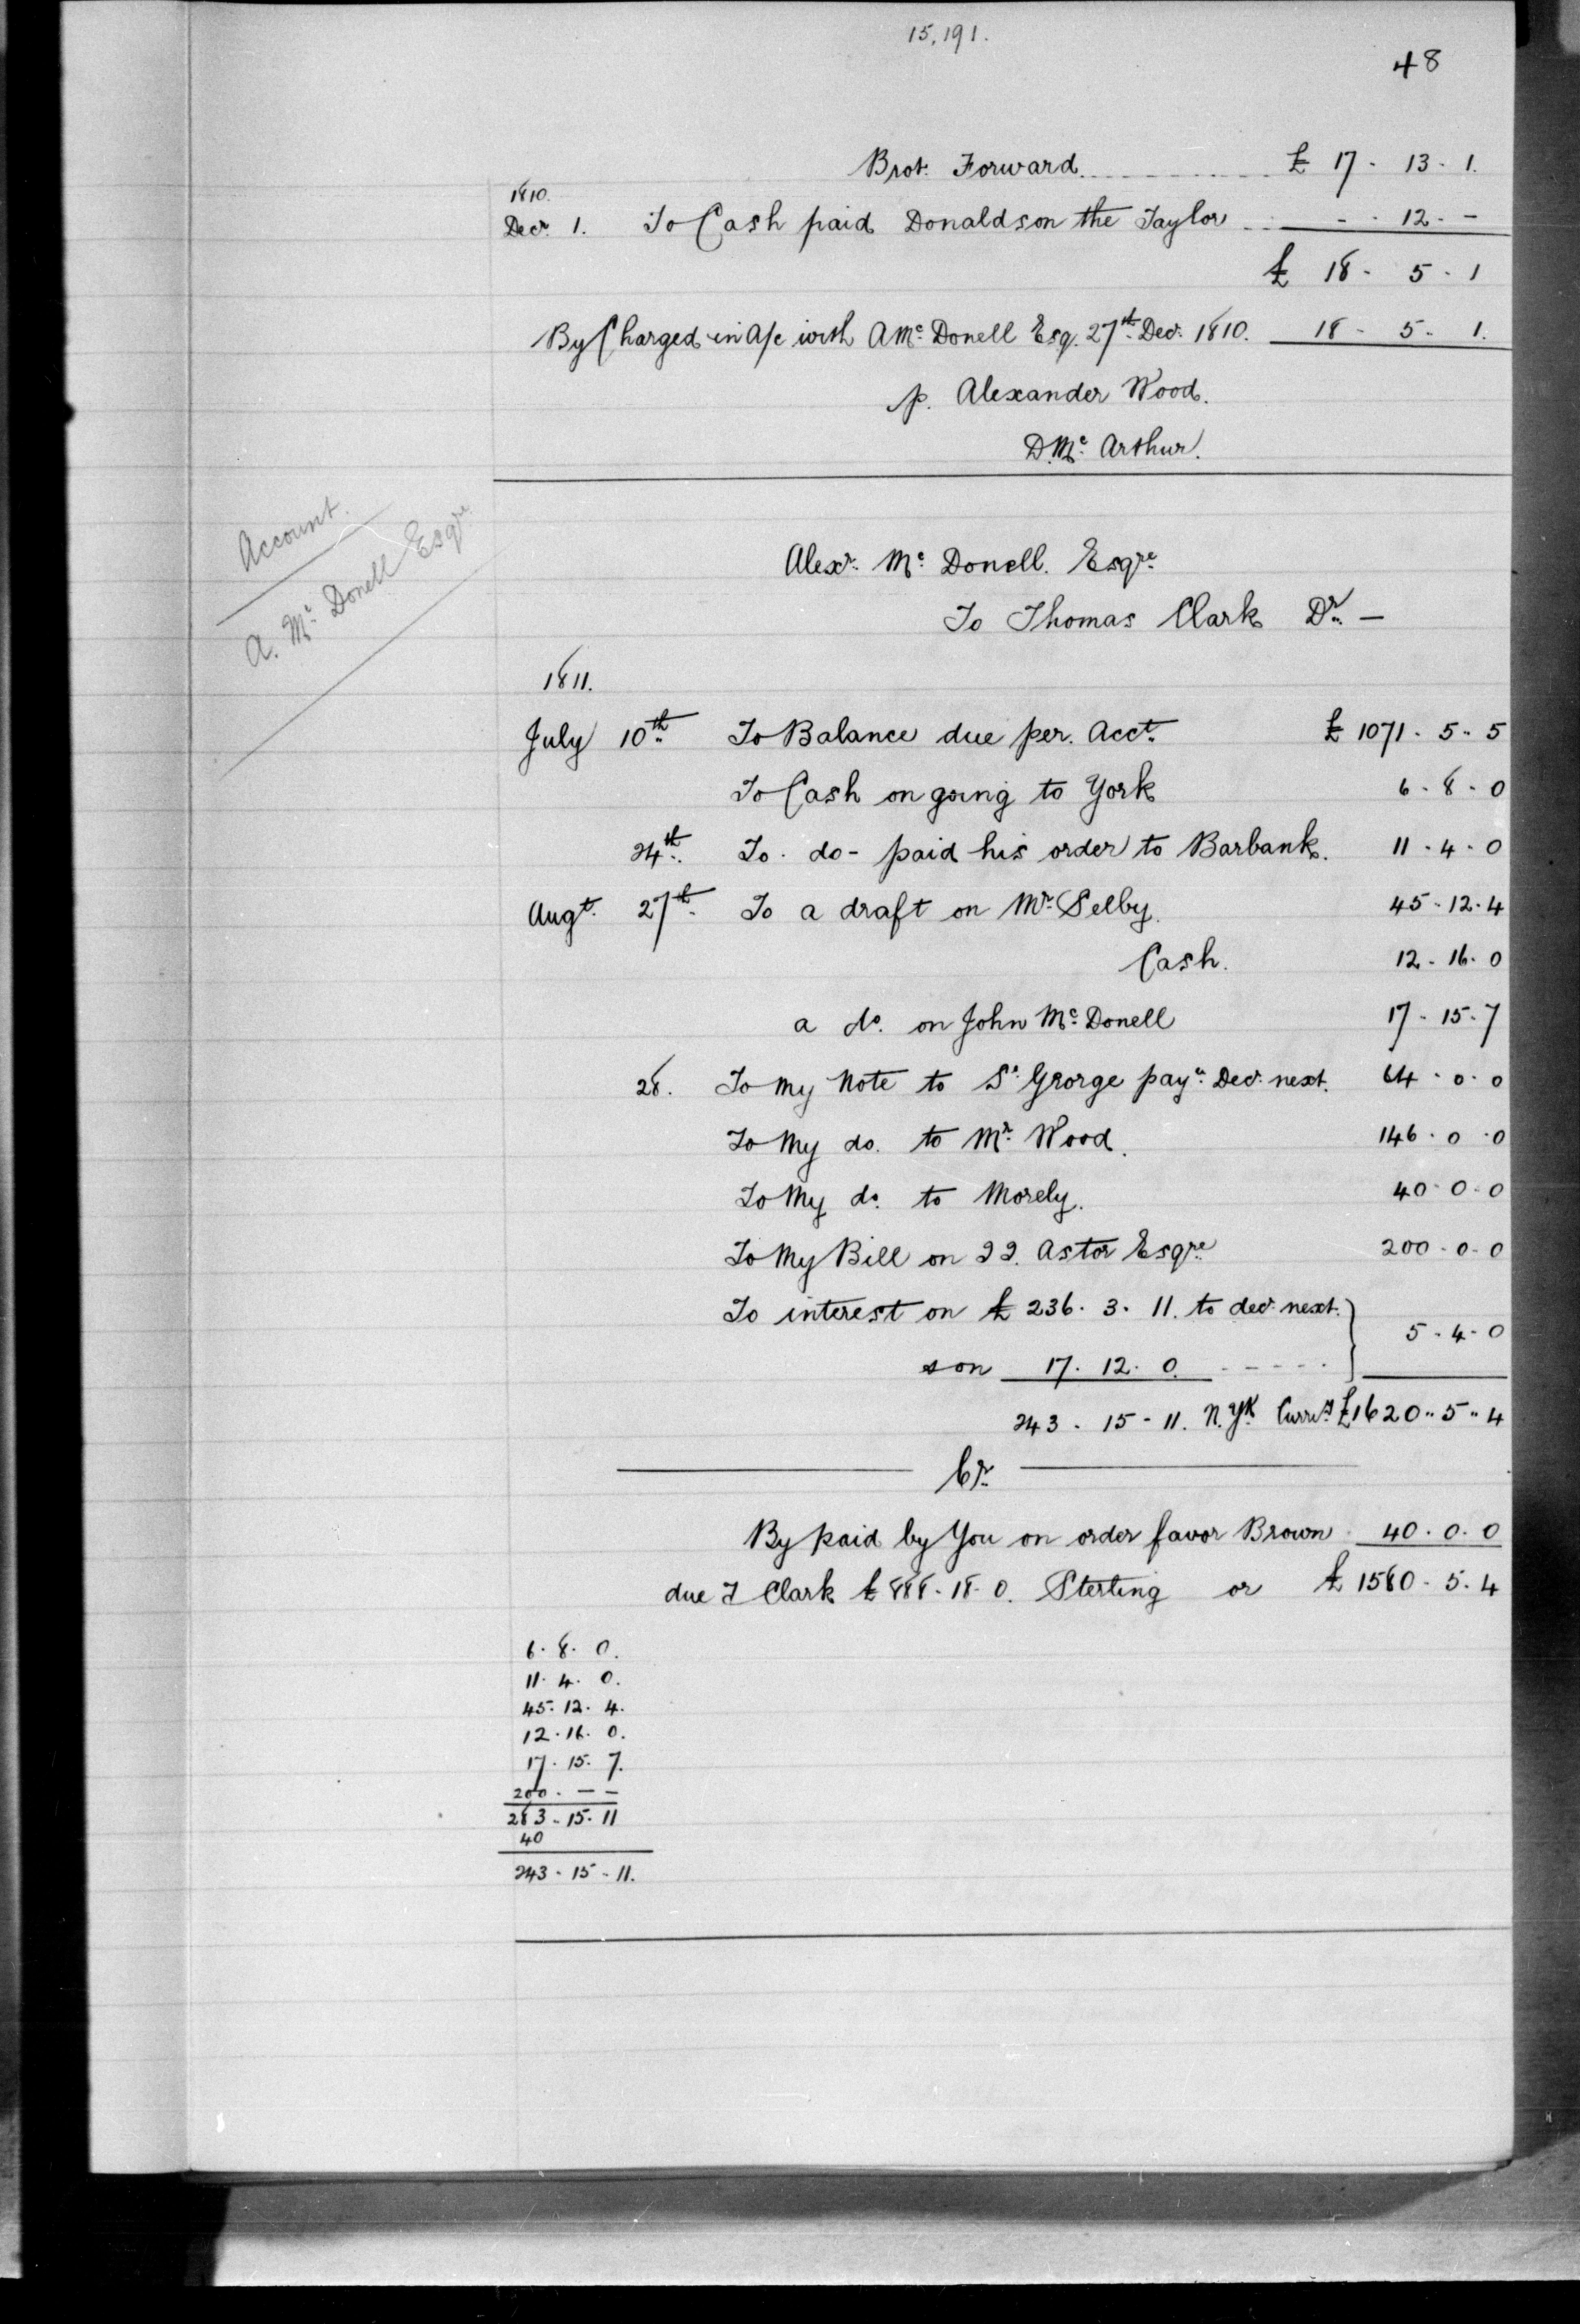 15,191.
48
Brot. Forward............ £ 17 - 13 - 1.
1810.
Decr. 1. To Cash paid Donaldson the Taylor .. - - 12 - -
£ 18 - 5 - 1
By Charged in A/c with A Mc Donell Esq. 27th Decr. 1810. 18 - 5 - 1.
p. Alexander Wood.
D. Mc Arthur.
Account.
A. Mc Donell Esqre
Alexr. Mc Donell. Esqre
To Thomas Clark Dr. -
1811.
July 10th To Balance due per. Acct. £ 1071 - 5 - 5
To Cash on going to York 6 - 8 - 0
24th. To. do - paid his order to Barbank. 11 - 4 - 0
Augt. 27th. To a draft on Mr. Selby. 45 - 12 - 4
Cash. 12 - 16 - 0
a do. on John Mc Donell 17 - 15 - 7
28. To my Note to St. George paye. Decr. next. 64 - 0 - 0
To My do. to Mr. Wood. 146 - 0 - 0
To My do. to Morely. 40 - 0 - 0
To My Bill on JJ. Astor Esqre 200 - 0 - 0
To interest on £ 236 . 3 . 11. to decr. next. } 5 - 4 - 0
s on 17 . 12 . 0. - - - - -
243 - 15 - 11. N. Yk. Curry. £1620 " 5 " 4
Cr.
By paid by You on order favor Brown 40 . 0 . 0
due T Clark £ 888 - 18 - 0. Sterling or £ 1580 - 5 - 4
6 . 8 . 0.
11 . 4 . 0.
45 - 12 . 4.
12 . 16 . 0.
17 . 15 . 7.
200 . - -
283 - 15 - 11
40
243 - 15 - 11.